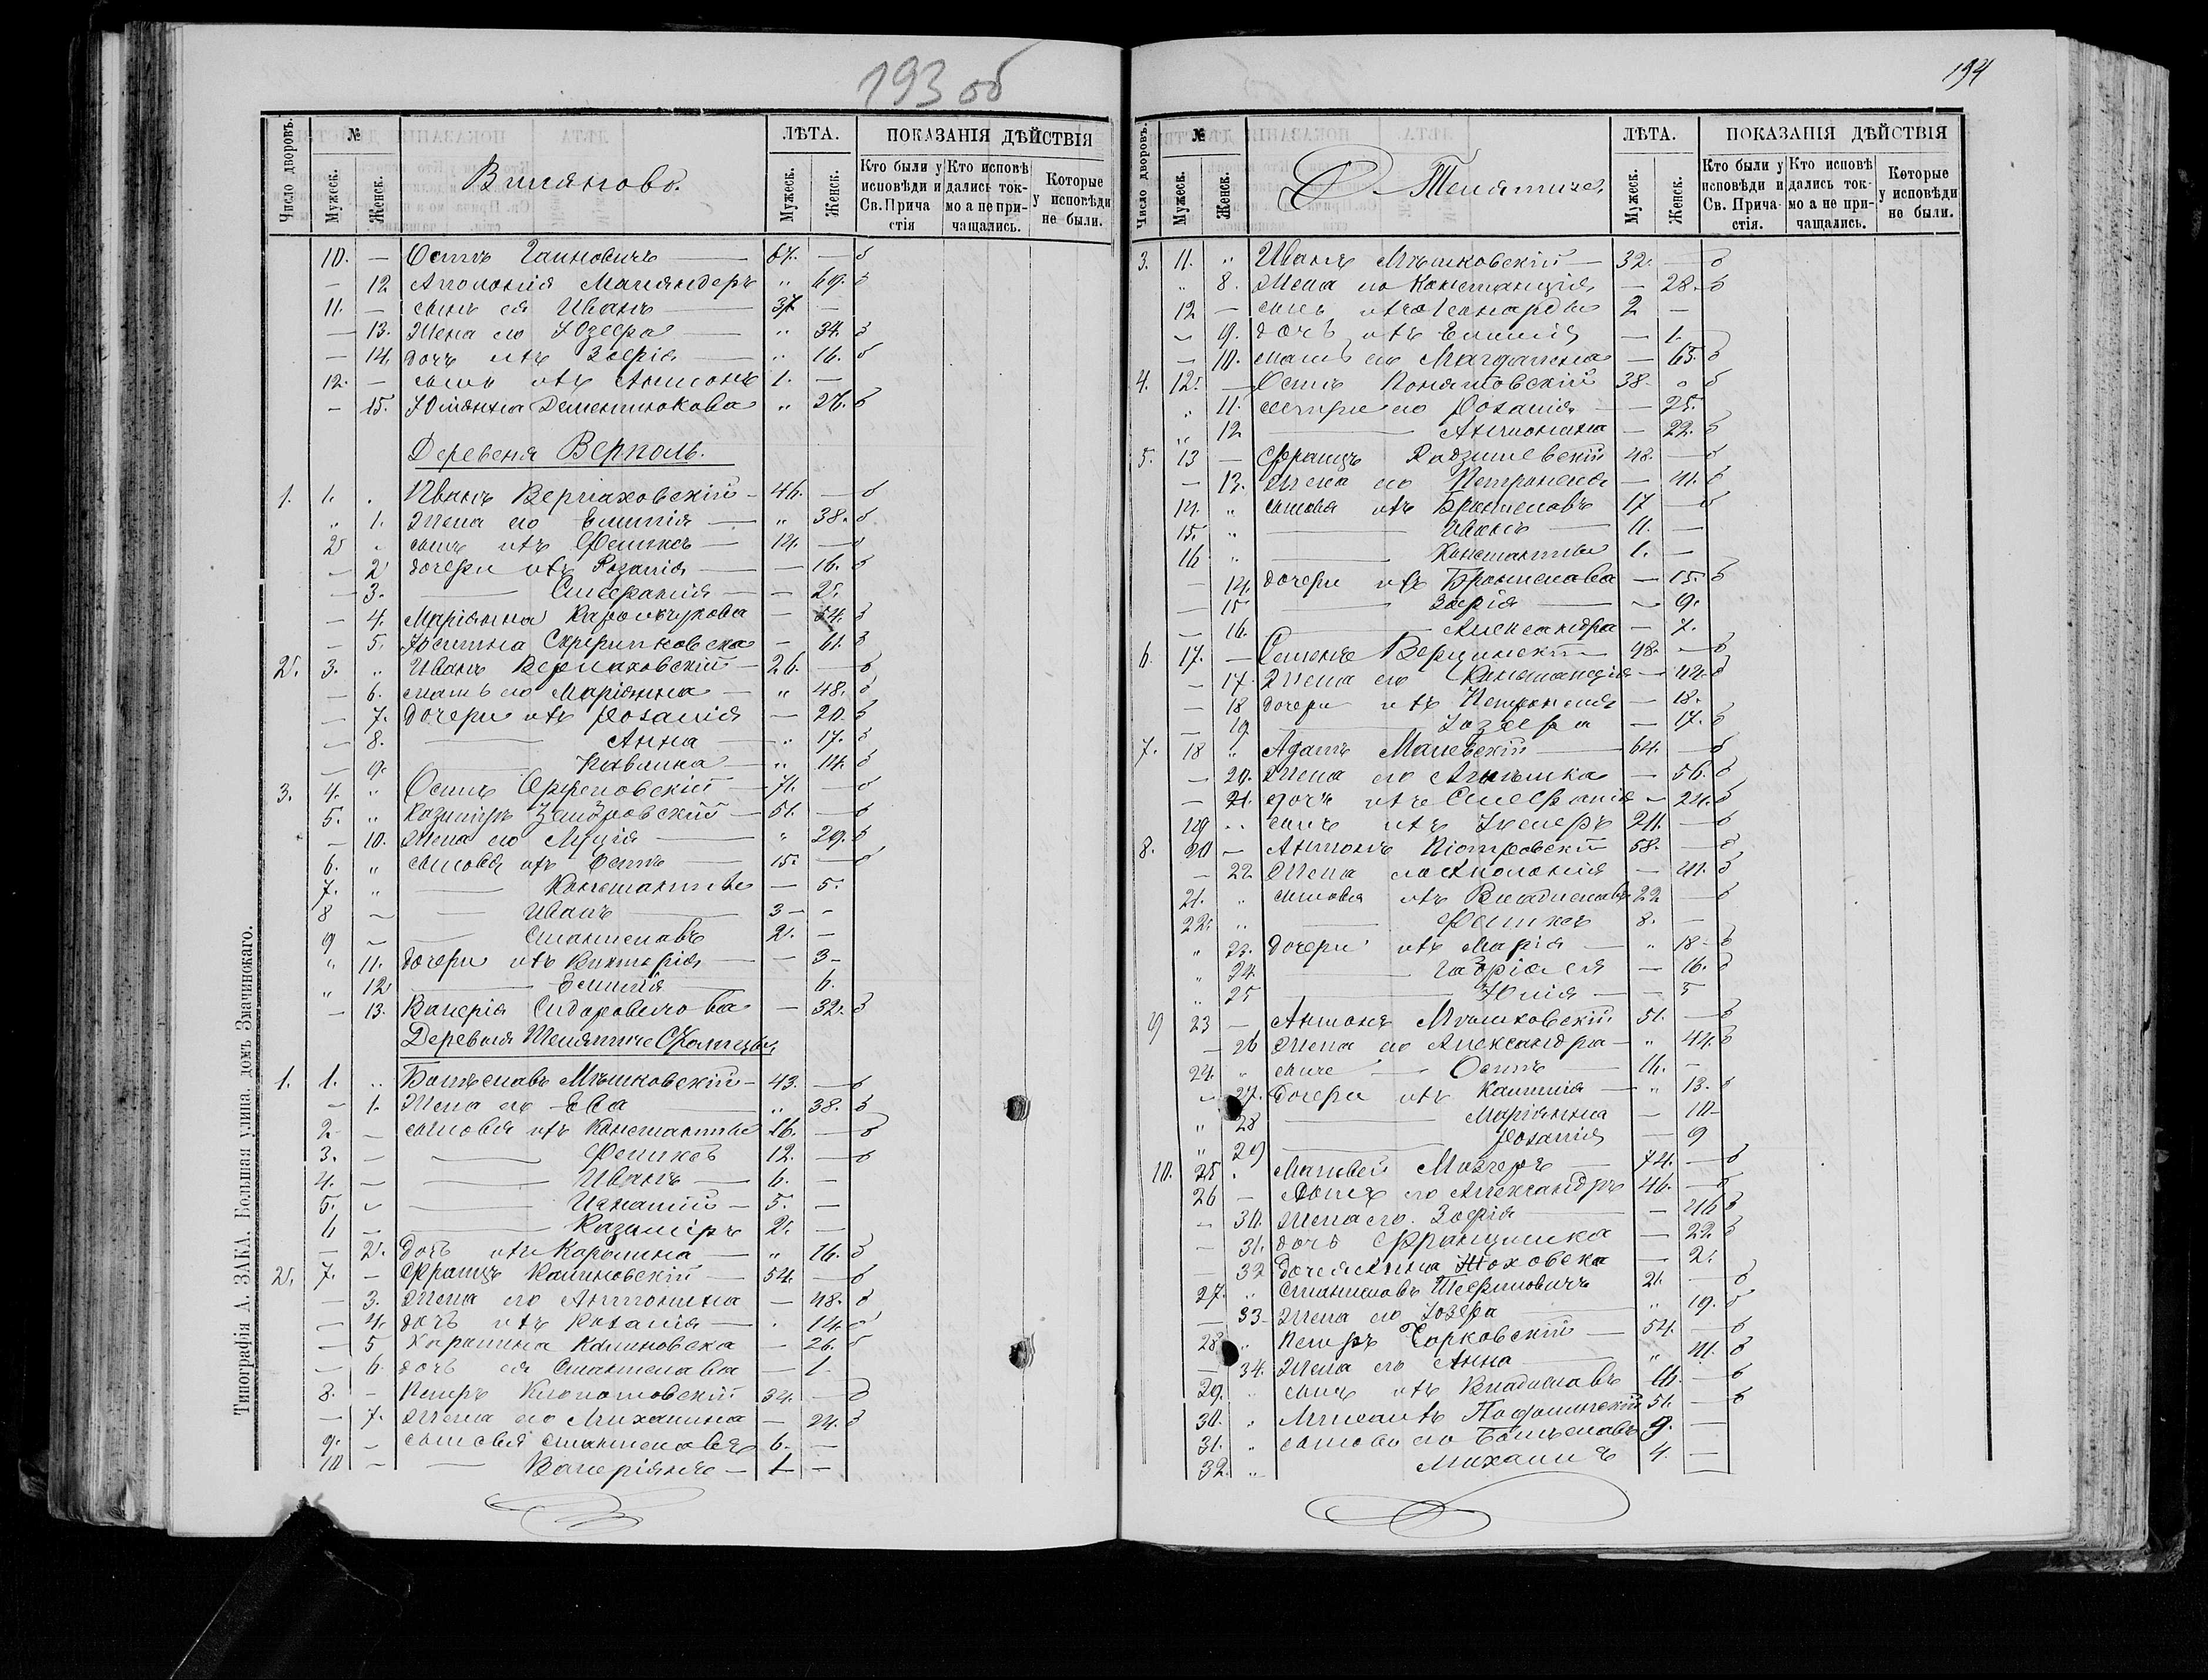 193 об
Число дворовъ.
№
Мужеск.
Женск.
Виляново.
ЛѢТА.
Мужеск.
Женск.
ПОКАЗАНІЯ ДѢЙСТВІЯ
Кто были у исповѣди и Св. Прича стія
Кто исповѣ дались ток- мо а не при- чащались.
Которые у исповѣди не были.
10. — Осипъ 67. — б
— 12 Аполонія " 69. б
11. — сынъ ея Иванъ 37 —
— 13. Жена его Юзефа " 34. б
— 14. дочь ихъ Зофія " 16. б
12. — сынъ ихъ Антонъ 1. —
— 15. " 27. б
Деревня Верполь.
1. 1. . Иванъ Верпаховскій 46. — б
" 1. Жена его Емилія " 38. б
2 " сынъ ихъ Феликсъ 14. — б
— 2 дочери ихъ Розалія — 16. б
— 3. — Стефанія — 2.
— 4. Маріанна — 54. б
— 5. — 61. б
2. 3. " Иванъ Верпаховскій 26. — б
— 6. мать его Маріанна " 48. б
— 7. дочери ихъ Розалія — 20. б
— 8. — Анна " 17. б
— 9. — Павлина " 14. б
3. 4. " Осипъ 71. — б
5. " Казимиръ 51. — б
— 10. Жена его Луція " 29. б
6. " сыновья ихъ Осипъ 15. — б
7. " — Константинъ — 5.
8 — — Иванъ 3 — —
9 — — Станиславъ 2. —
" 11. дочери ихъ Викторія — 3 —
" 12 — Емилія 6.
— 13. Валерія Сидоровичова — 32. б
Деревня
1. 1. " Болеславъ Мѣшковскій 43. — б
— 1. Жена его Ева " 38. б
2. — сыновья ихъ Константинъ 16. — б
3. — — Феликсъ 12. — б
4. — — Иванъ 6. —
5. — — Игнатій 5. —
6 — — Казиміръ 2. —
— 2. Дочь ихъ Каролина " 16. б
2. 7. — Францъ Калиновскій 54. — б
— 3. Жена его Антонина — 48. б
— 4. дочь ихъ Розалія . 14. б
— 5 Каролина Калиновска — 26. б
— 6. дочь ея Станислава — 1.
8. — Петръ Клопотовскій 34. — б
— 7. Жена его Михалина — 24. б
9. — сыновья Станиславъ 6. —
10 — — Валеріянъ 1 —
Типографія А. ЗАКА. Большая улица. домъ Змачинскаго.
194
Число дворовъ.
№
Мужеск.
Женск.
ЛѢТА.
Мужеск.
Женск.
ПОКАЗАНІЯ ДѢЙСТВІЯ
Кто были у исповѣди и Св. Прича- стія.
Кто исповѣ дались ток- мо а не при- чащались.
Которые у исповѣди не были.
3. 11. " Иванъ Мѣшковскій 32. — б
" 8. Жена его Констанція — 28. б
12 — сынъ ихъ Леонардъ 2 —
— 9. дочь ихъ Емилія — 1.
— 10. мать ихъ Магдалина — 65. б
4. 12. — Осипъ Понятовскій 38. " б
" 11. сестры его Розалія — 25.
" 12 — Антонина — 22. б
5. 13 — Францъ Радзишевскій 48. — б
— 13. Жена его Петронеля — 41. б
14. " сыновья ихъ Брониславъ 17 — б
15. " — Иванъ 11. —
16 " — Константинъ 1. —
— 14. дочери ихъ Бронислава — 15. б
— 15 — Зофія — 9.
— 16. — Александра — 7.
6. 17. — 48. — б
— 17. Жена его Констанція — 42. б
— 18 дочери ихъ Петронеля — 18.
— 19 — Іозефа — 17. б
7. 18 " Адамъ Малевскій 64. — б
— 20. Жена его — 56. б
— 21. дочь ихъ Стефанія — 24. б
19 " сынъ ихъ 21. — б
8. 20 — Антонъ Піотровскій 58. — б
— 22 Жена его Аполонія — 41. б
21. " сыновья ихъ Владиславъ 22 — б
22. " — Феликсъ 8. —
" 23. дочери ихъ Марія " 18 — б
" 24. — Габріеля — 16. б
" 25 — Юлія — 5
9 23 — Антонъ Мѣшковскій 51. — б
— 26 Жена его Александра " 44. б
24. " сынъ — Осипъ 16. —
— 27. Дочери ихъ " 13. б
" 28 — Маріанна — 10 —
" 29 — Розалія — 9
10. 25. . Матвей 74. — б
26 — его Александръ 46. — б
— 30. Жена его Зофія — 46 б
— 31. дочь Францишка — 22. б
— 32 — 2.
27. " Станиславъ 21. — б
— 33. Жена его Іозефа " 19. б
28 " Петръ Чарковскій 54. — б
— 34. Жена его Анна " 41. б
29. " сынъ ихъ Владиславъ 16. — б
30. " 51. — б
31. " сыновья его Болеславъ 9. —
32. " Михаилъ 4. —